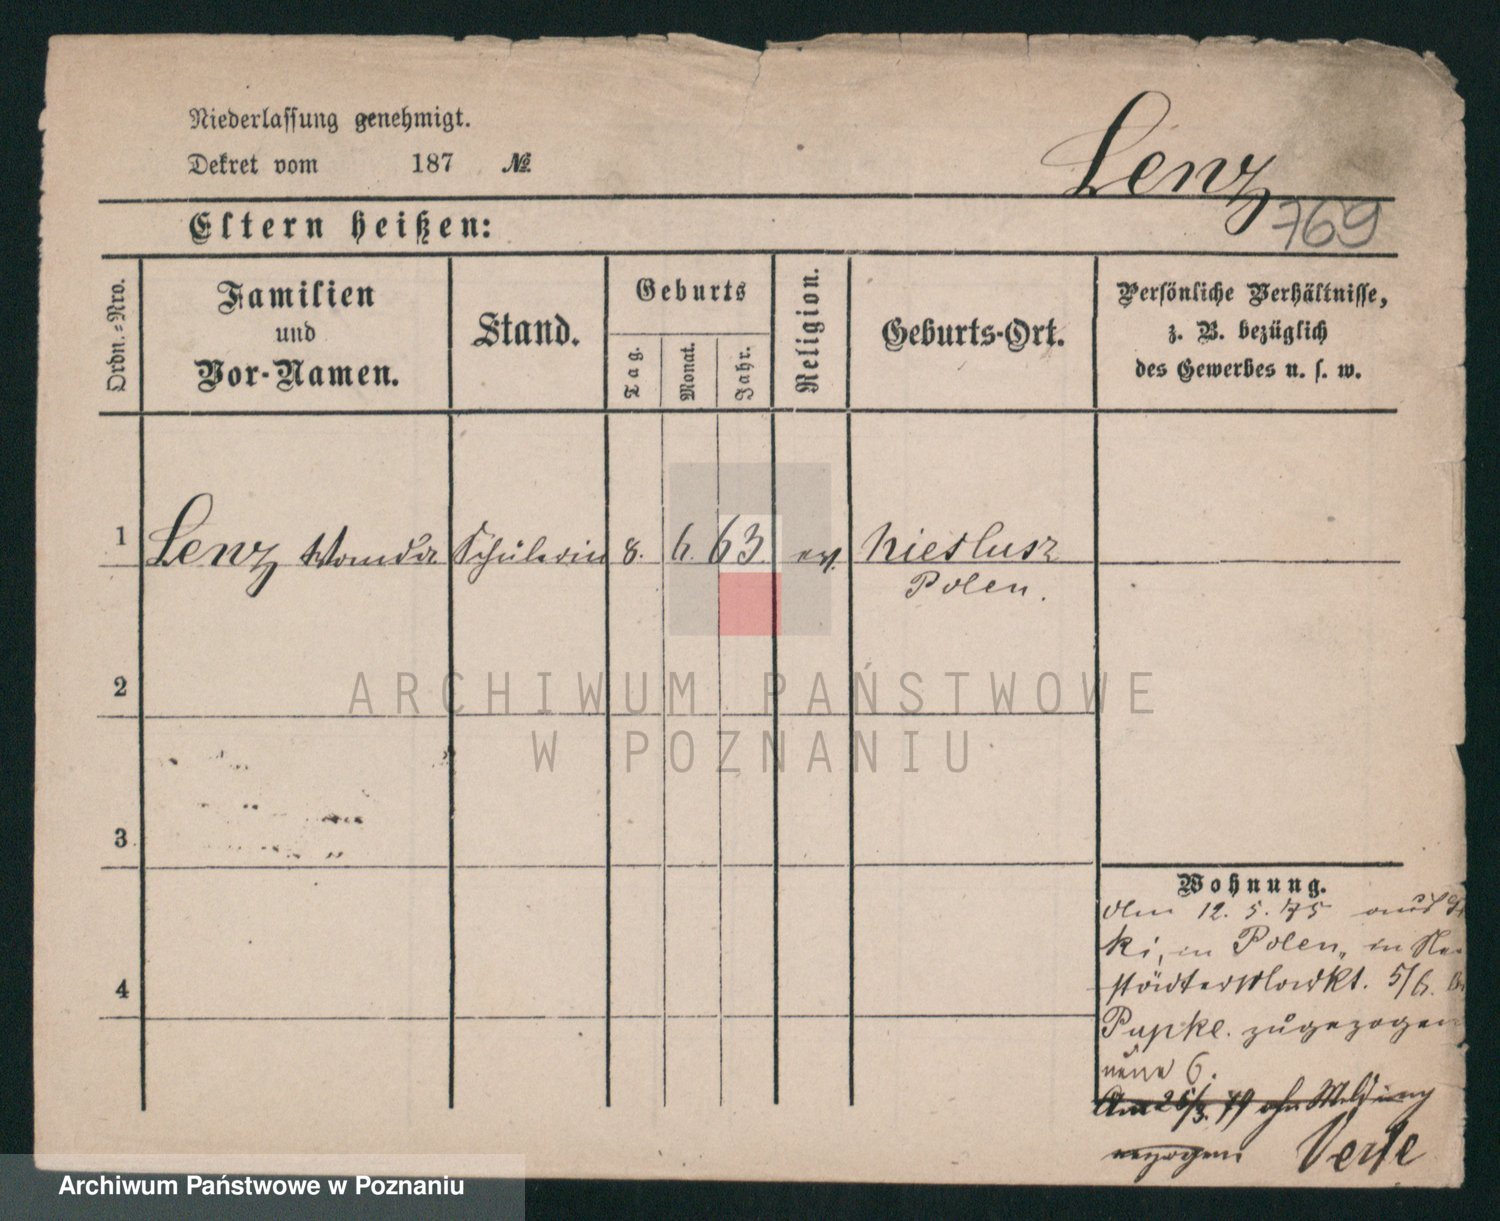 Niederlassung genehmigt.
Dekret vom 187 №
Lenz
769
Eltern heißen:
Ordn.-Nro.
Familien
und
Vor-Namen.
Stand.
Geburts
Tag.
Monat.
Jahr.
Religion.
Geburts-Ort.
Persönliche Verhältnisse,
z. B. bezüglich
des Gewerbes u. s. w.
1 Lenz Wanda Schülerin 8. 6. 63. ev. Nieslusz
Polen.
2
ARCHIWUM PAŃSTWOWE
W POZNANIU
3
Wohnung.
12. 5. 75 aus
ki, in Polen, in Neu
städter Markt. 5/6. b.
4
Papke. zugezogen
neue 6.
Am 26/3. 79 ohne Meldung
verzogen.
Archiwum Państwowe w Poznaniu